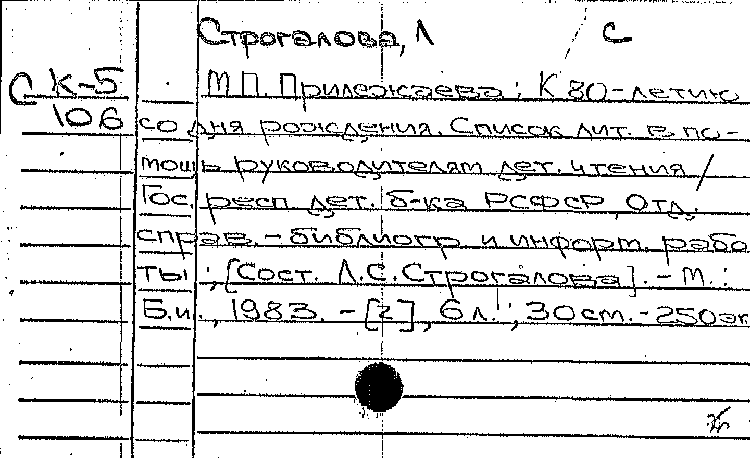 Строгалова, Л С
С К-5 М.П. Прилежаева: К 80-летию
106 со дня рождения. Список лит. в по-
мощь руководителям дет. чтения /
Гос. респ. дет. б-ка РСФСР, Отд.
справ.-библиогр. и информ. рабо
ты ; [Сост. Л.С. Строгалова]. - М. :
Б.и., 1983. - [2], 6 л. ; 30 см. - 250 эк